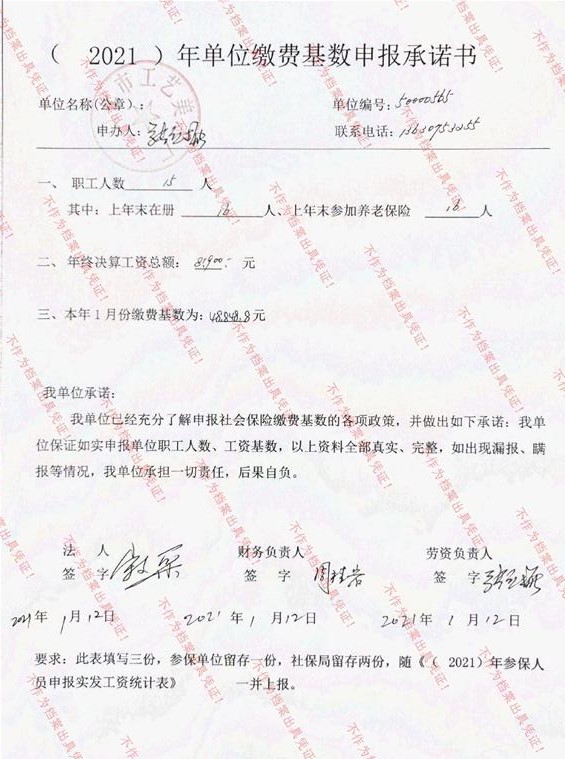 （ 2021 ）年单位缴费基数申报承诺书
市工艺美
单位名称(公章)： 单位编号:50000565
申办人: 联系电话:
一、 职工人数 15 人
其中: 上年末在册 16 人、上年末参加养老保险 16 人
二、年终决算工资总额: 元
三、本年1月份缴费基数为:48848.8元
我单位承诺:
我单位已经充分了解申报社会保险缴费基数的各项政策，并做出如下承诺: 我单
位保证如实申报单位职工人数、工资基数，以上资料全部真实、完整，如出现漏报、瞒
报等情况，我单位承担一切责任，后果自负。
法 人 财务负责人 劳资负责人
签 字 签 字 签 字
2021年 1月12日 2021年 1月12日 2021年 1月12日
要求: 此表填写三份，参保单位留存一份，社保局留存两份，随《（ 2021）年参保人
员申报实发工资统计表》 一并上报。
不作为档案出具凭证！